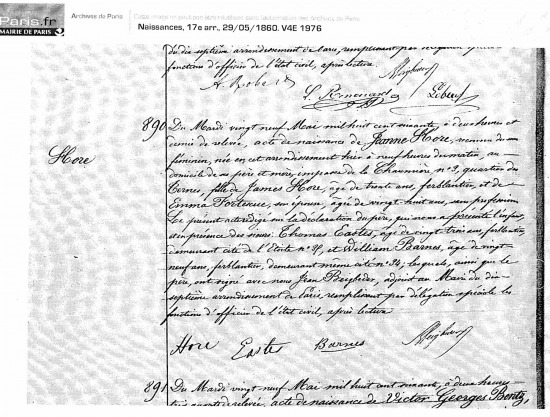 Paris.fr
MAIRIE DE PARIS
Archives de Paris
Naissances, 17e arr., 29/05/1860. V4E 1976
du dix septième arrondissement de Paris, remplissant par délégation
fonctions d'officier de l'état civil, après lecture
890
Hore
Du Mardi vingt neuf Mai mil huit cent soixante, à deux heures et
demie de relevée, acte de naissance de Jeanne Hore, du sexe
féminin, née en cet arrondissement hier à neuf heures du matin, au
domicile de ses père et mère, impasse de la Chaumière n° 2, quartier des
Ternes, fille de James Hore, âgé de trente ans, ferblantier, et de
Emma son épouse, âgée de vingt huit ans, sans profession
Le présent acte rédigé sur la déclaration du père, qui nous a présenté l'enfant
en présence des Thomas Eastes, âgé de vingt trois ans, ferblantier,
demeurant cité de l'étoile n° et William Barnes, âgé de vingt
neuf ans, ferblantier, demeurant même cité n° 34; lesquels, ainsi que le
père, ont signé avec nous Jean adjoint au Maire du dix
septième arrondissement de Paris, remplissant par délégation spéciale les
fonctions d'officier de l'état civil, après lecture
Hore Eastes Barnes
891
Du Mardi vingt neuf Mai mil huit cent soixante, à deux heures
trois quarts de relevée, acte de naissance de Victor Georges